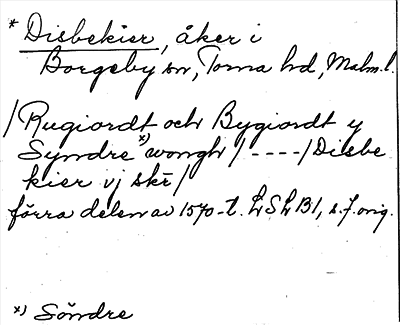 * Disbekier, åker i
Borgeby sn, Torna hd, Malm. l.
/Rugiordt och Bygiordt y
Syndre *) wongh/ ----/Disbe
kier vj skr/
förra delen av 1570-t. LSLB1, s.f. orig.
*) Söndre